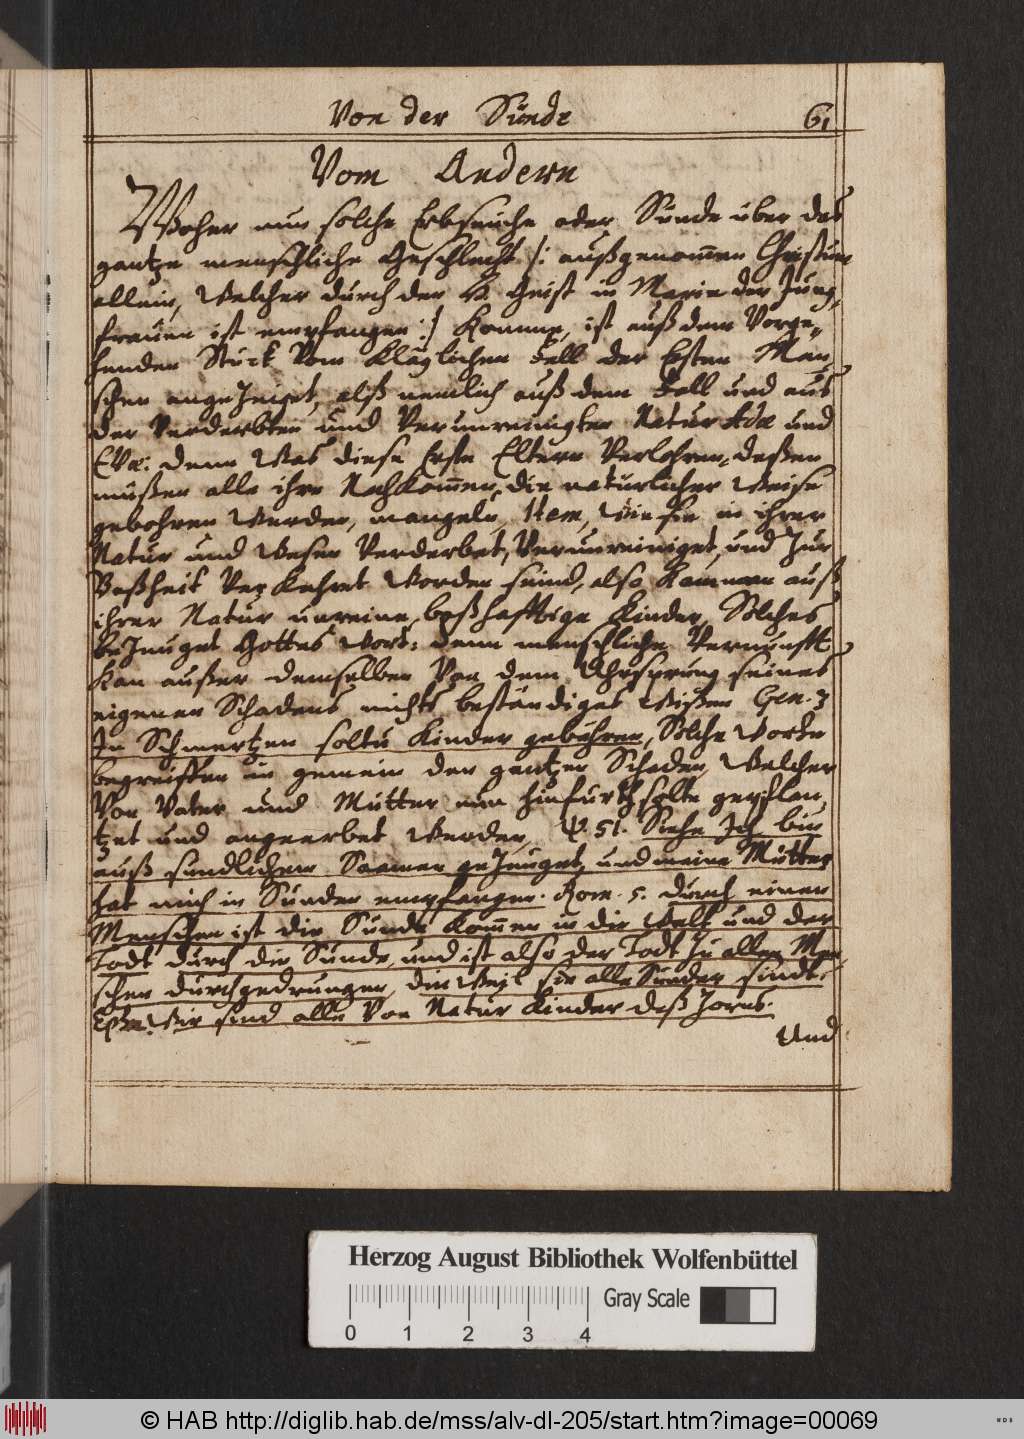 Von der Sünde 61
Vom Andern
Woher nun solche Erbseuche oder Sünde über das
gantze menschliche Geschlecht /: außgenom̄en Christum
allein, Welcher durch den H. Geist in Maria der Jung,
frauen ist empfangen :/ Komme, ist auß dem Vorge,
henden Stück Vom Kläglichen Fall der Ersten Men,
schen angezeigt, alß nemlich auß dem Fall und aus
der Verderbten und Verunreinigten Natur Adæ und
Evæ: denn Was diese Erste Eltern Verlohren, deßen
müßen alle ihre Nachkom̄en, die natürlicher Weise
gebohren Werden, mangeln, Item, Wie sie in ihrer
Natur und Wesen Verderbet, Verunreiniget, und Zur
Boßheit Verkehret Worden seind, also Kommen auß
ihrer Natur unreine, boßhafftige Kinder, Solches
bezeuget Gottes Wort: denn menschliche Vernunfft
Kan außer demselben Von dem Uhrsprung seines
eigenen Schadens nichts beständiges Wißen Gen. 3
In Schmertzen soltu Kinder gebähren, Solche Worte
begreiffen in gemein den gantzen Schaden, Welcher
Von Vater und Mutter nun hinfurth solte gepflan,
tzet und angeerbet Werden, Ψ. 51. Siehe Ich bin
auß sundlichem Saamen gezeuget, und meine Mutter
hat mich in Sünden empfangen. Rom. 5. durch einen
Menschen ist die Sünde Kom̄en in die Welt und der
Todt durch die Sünde, und ist also der Todt Zu allen Men,
schen durchgedrungen, die Weil sie alle Sünder sindt.
Eph. Wir sind alle Von Natur Kinder deß Zorns.
Und
Herzog August Bibliothek Wolfenbüttel
0 1 2 3 4 Gray Scale
© HAB http://diglib.hab.de/mss/alv-dl-205/start.htm?image=00069